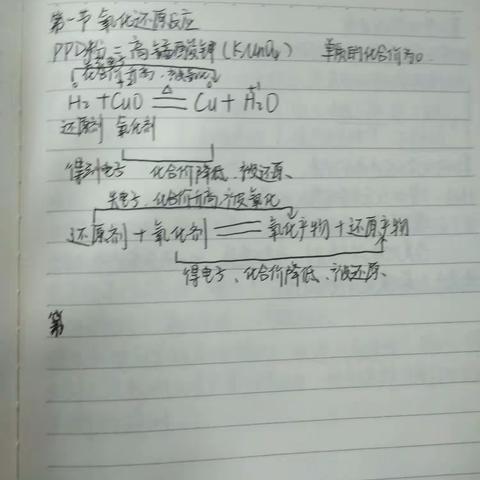 第一节 氧化还原反应
PPD粉 = 高锰酸钾(KMnO₄) 单质的化合价为0.
化合价升高、被氧化
0 +2 0 +1
H₂ + CuO ≜ Cu + H₂O
还原剂 氧化剂
得到电子 化合价降低、被还原、
失电子、化合价升高、被氧化
还原剂 + 氧化剂 == 氧化产物 + 还原产物
得电子、化合价降低、被还原、
第